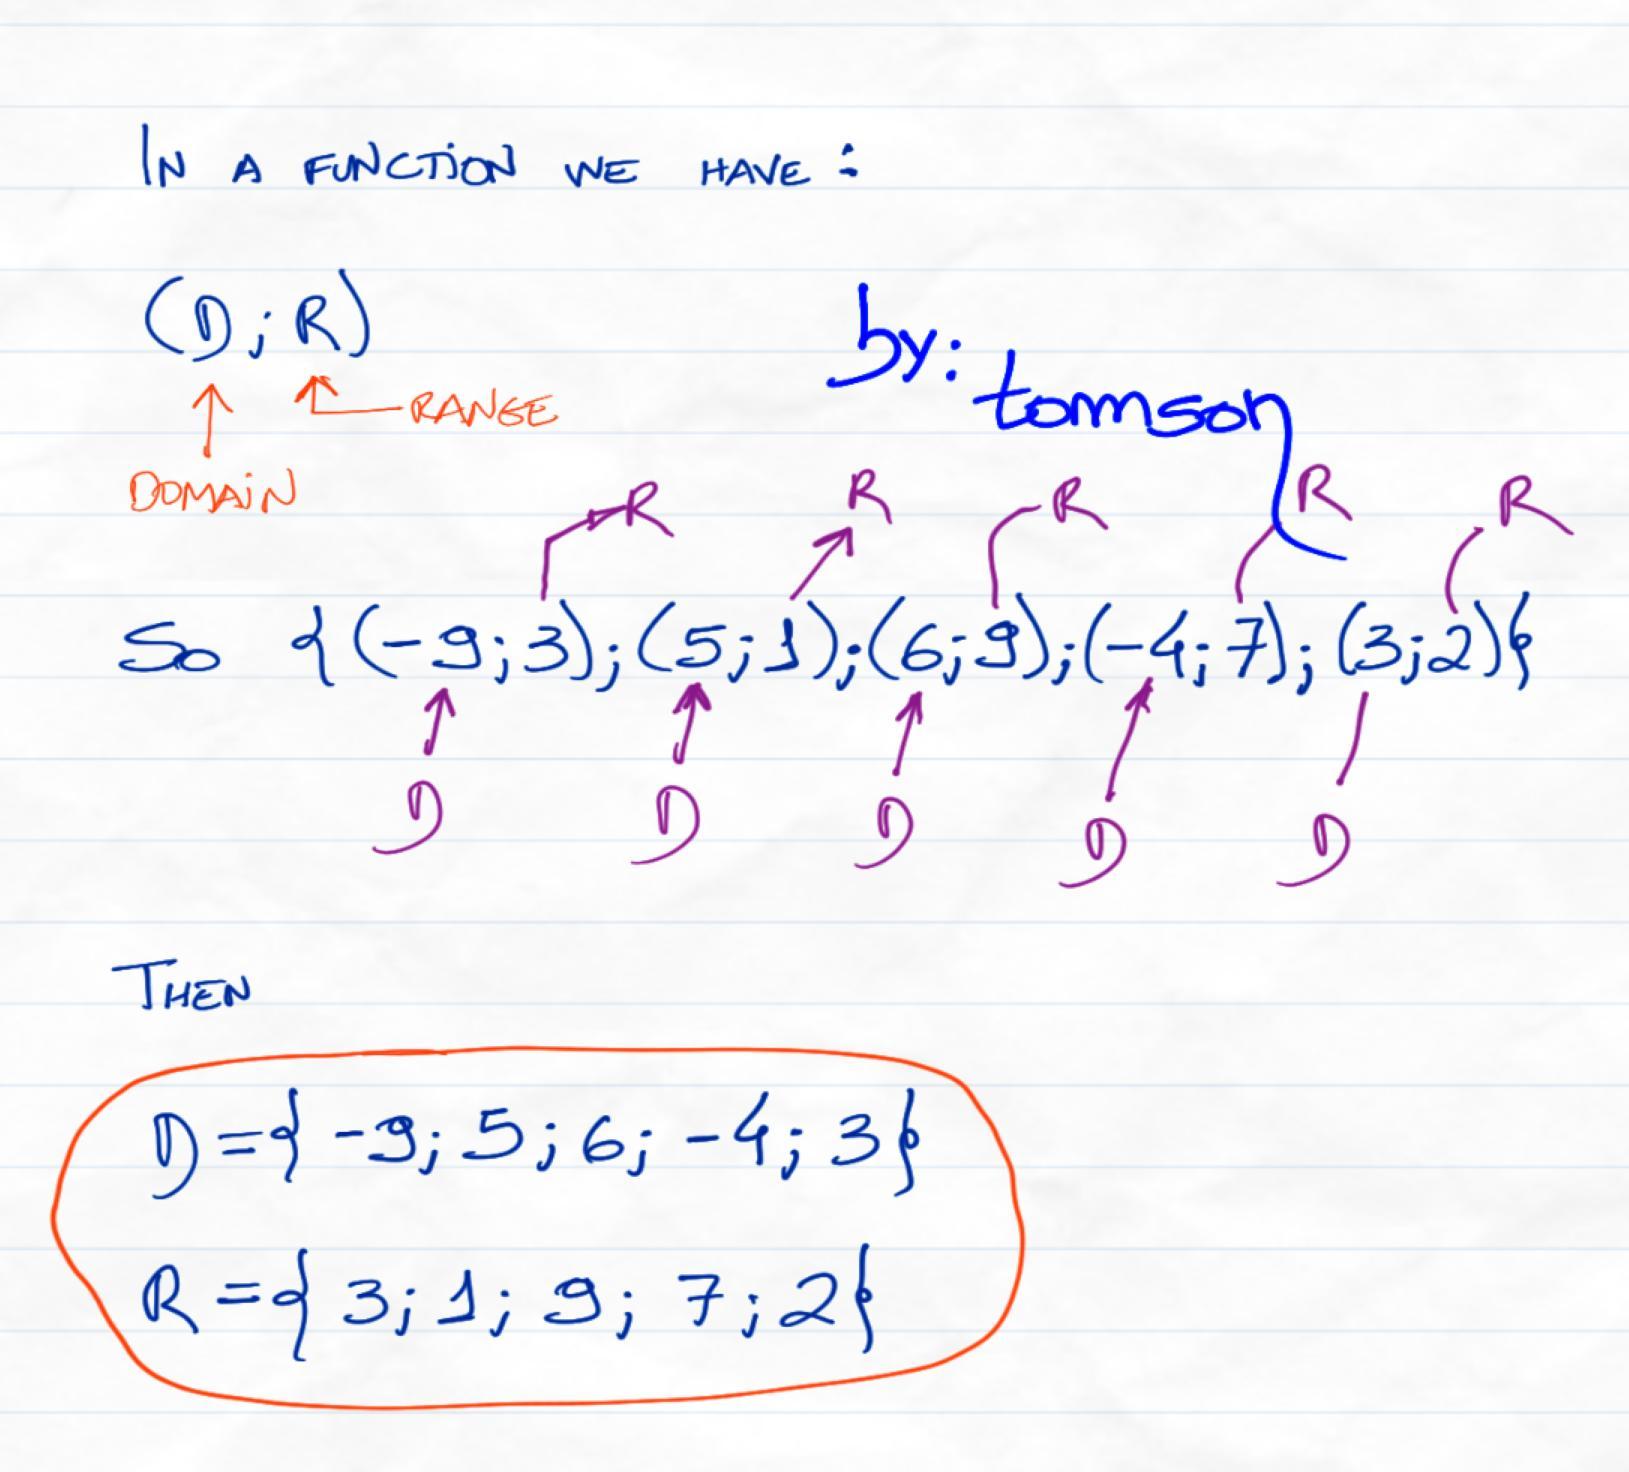 IN A FUNCTION WE HAVE :
(D; R)
by: tomson
RANGE
DOMAIN
R R R R R
So {(-9;3);(5;1);(6;9);(-4;7);(3;2)}
D D D D D
THEN
D={-9; 5; 6; -4; 3}
R={3; 1; 9; 7; 2}